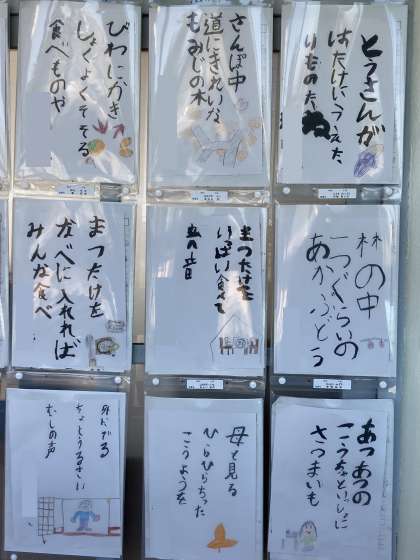 とうさんが
はたけにうえた
さんぽ中
道にきれいだ
もみじの木
びわにかき
しょくよくそそる
食べものや
林の中
あかぶどう
まつたけを
いっぱい食べて
まつたけを
なべに入れれば
みんな食べ
あつあつの
こうちゃといっしょに
さつまいも
母と見る
ひらひらちった
こうようを
外にでる
ちょとうるさい
むしの声